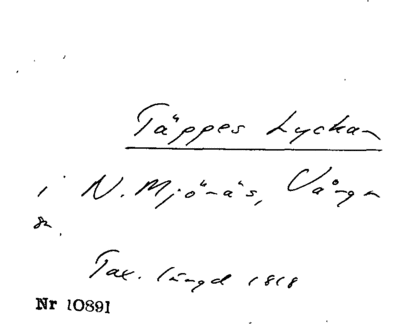 Täppes Lyckan
i N. Mjönäs, Vånga
sn.
Tax. längd 1818
Nr 10891